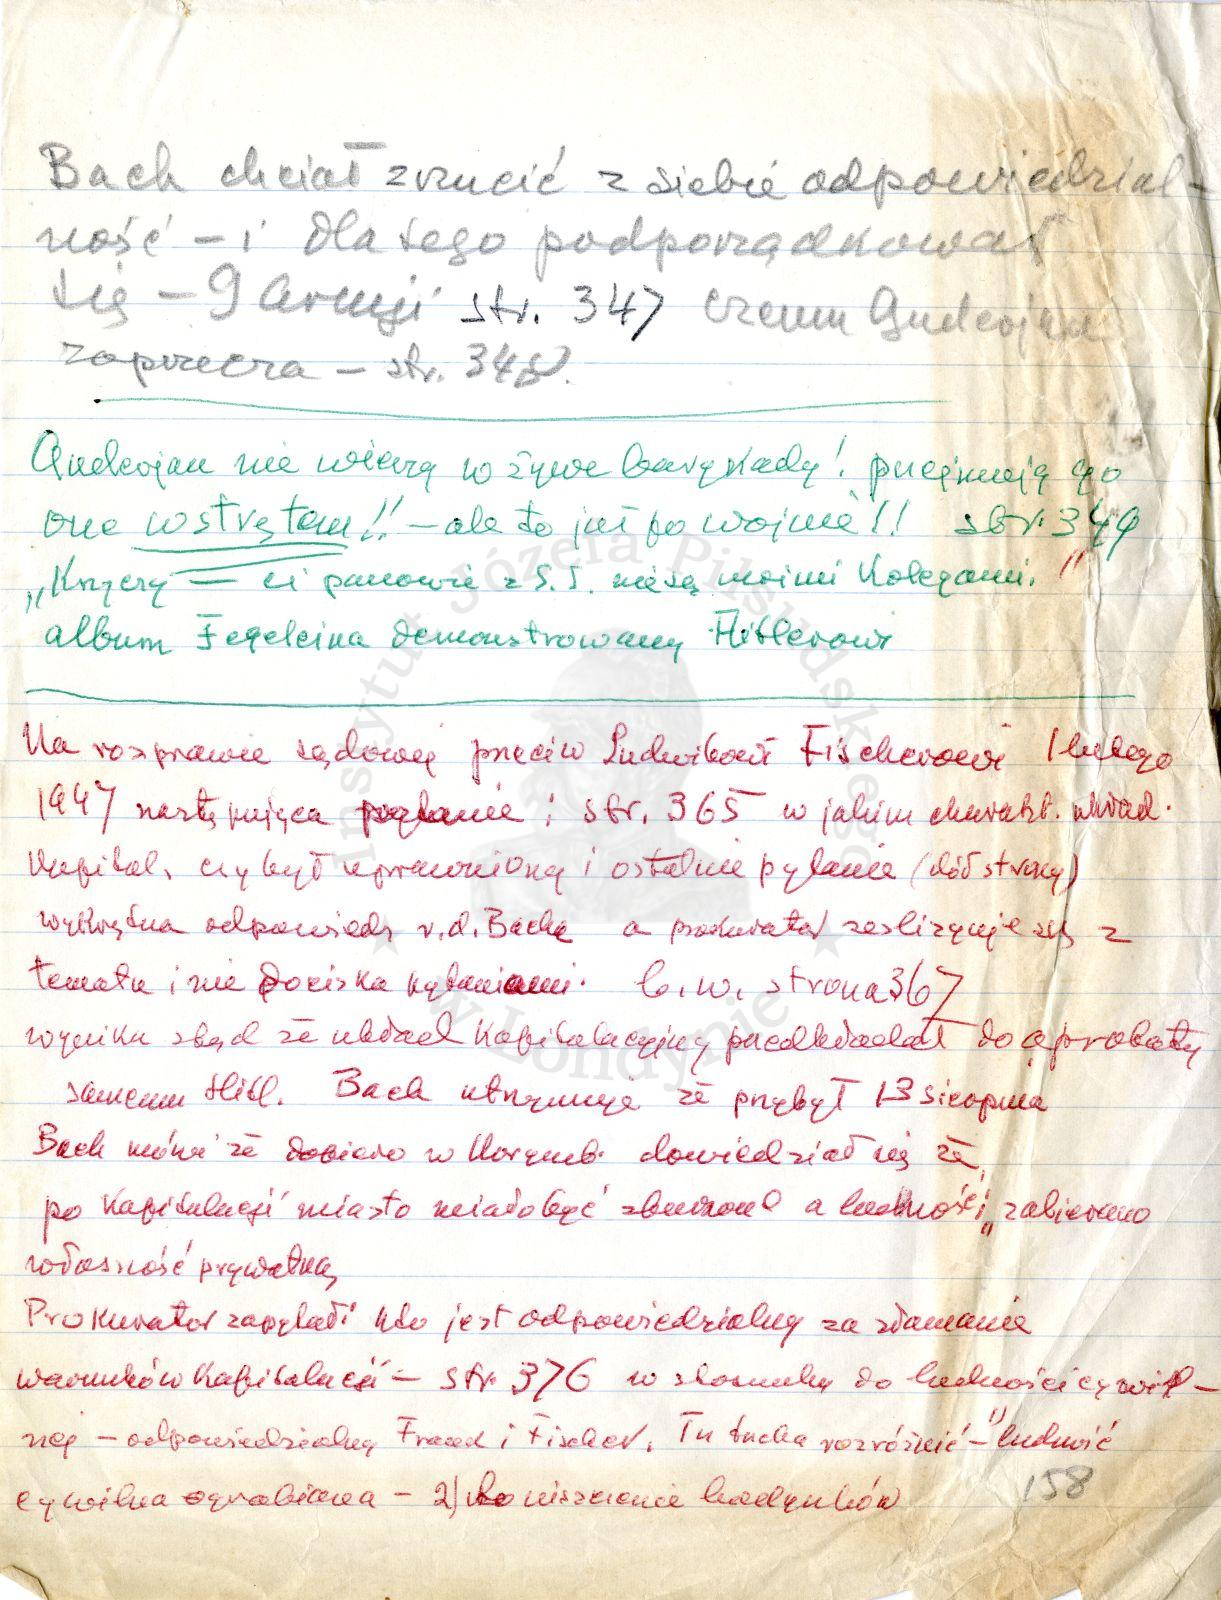 Bach chciał zrzucić z siebie odpowiedzial-
ność – i dlatego podporządkował
się – 9 Armji str. 347 czemu Guderjan
zaprzecza – str. 348.
Guderjan nie wierzy w żywe barykady! przejmują go
one wstrętem!! – ale to już po wojnie!! str. 349
„Krzyczy – ci panowie z S.S. nie są moimi Kolegami."
album Fegeleina demonstrowany Hitlerowi
Na rozprawie sądowej przeciw Ludwikowi Fischerowi 1 lutego
1947 następujące pytanie: str. 365 w jakim charakt. układ.
Kapitul. czy był uprawniony i ostatnie pytanie (dół strony)
wykrętna odpowiedź v.d. Bacha a prokurator ześlizguje się z
tematu i nie dociska pytaniami. b. w. strona 367
wynika stąd że układ Kapitulacyjny przedkładał do aprobaty
samemu Hitl. Bach utrzymuje że przybył 13 sierpnia
Bach mówi że dopiero w Norymb. dowiedział się że
po Kapitulacji miasto miało być zburzone a ludności zabierano
własność prywatną
Prokurator zapytał: kto jest odpowiedzialny za złamanie
warunków Kapitulacji – str. 376 w stosunku do ludności cywil-
nej – odpowiedzialny Frank i Fischer. Tu trzeba rozróżnić – 1) ludność
cywilna ograbiana – 2) niszczenie budynków
158
Instytut Józefa Piłsudskiego
w Londynie